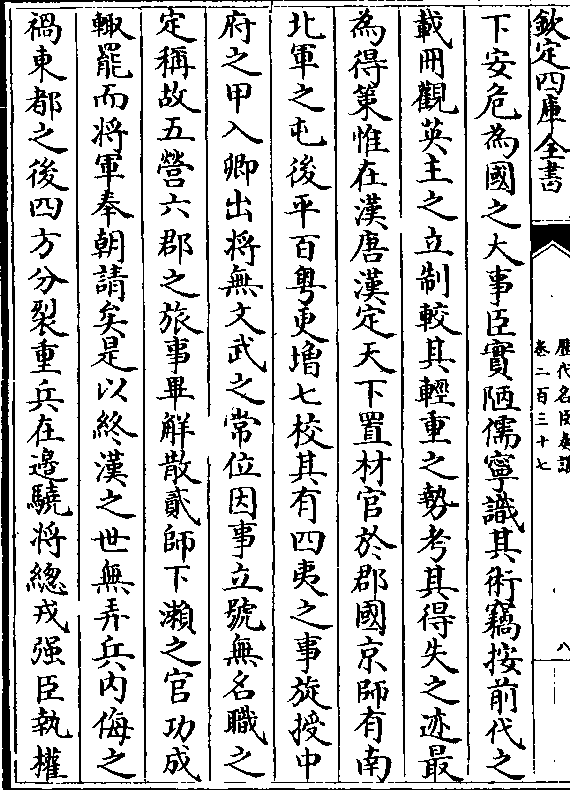 欽定四庫全書
歷代名臣奏議
卷二百三十七
八
下安危為國之大事臣實陋儒寧識其術竊按前代之
載冊觀英主之立制較其輕重之勢考其得失之迹最
為得策惟在漢唐漢定天下置材官於郡國京師有南
北軍之屯後平百粤更增七校其有四夷之事旋授中
府之甲入卿出將無文武之常位因事立號無名職之
定稱故五營六郡之旅事畢解散貳師下瀬之官功成
輙罷而将軍奉朝請矣是以終漢之世無弄兵内侮之
禍東都之後四方分裂重兵在邉驍将總戎强臣執權